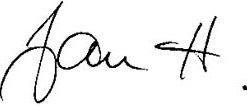 Jan H.